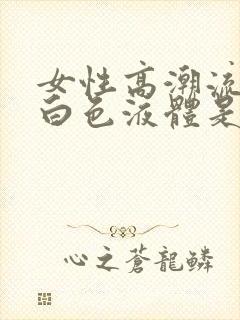 女性高潮流
白色液體是
心之蒼龍鱗